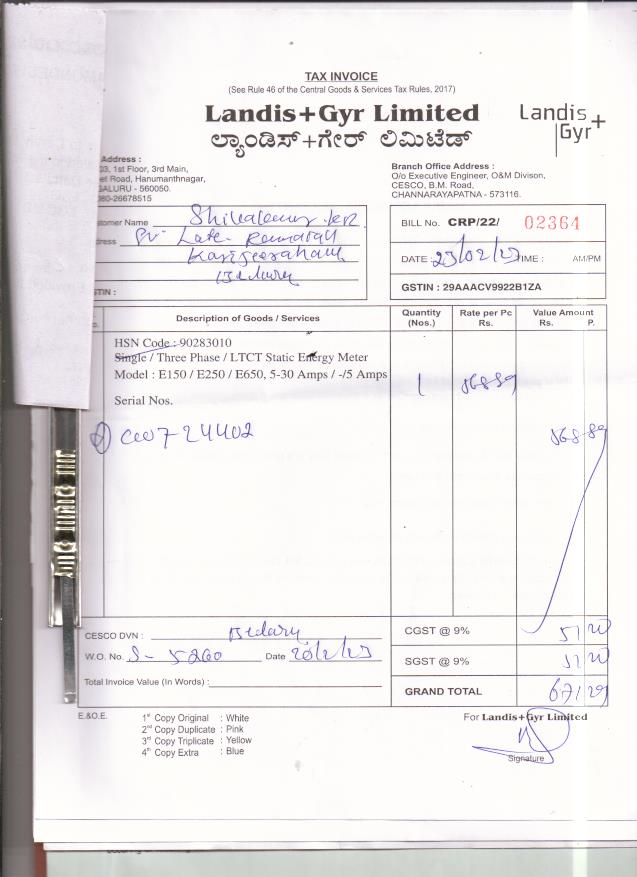 TAX INVOICE
(See Rule 46 of the Central Goods & Services Tax Rules, 2017)
Landis+Gyr Limited
ಲ್ಯಾಂಡಿಸ್+ಗೇರ್ ಲಿಮಿಟೆಡ್
Landis
Gyr+
Address :
03, 1st Floor, 3rd Main,
et Road, Hanumanthnagar,
GALURU - 560050.
080-26678515
Branch Office Address :
O/o Executive Engineer, O&M Divison,
CESCO, B.M. Road,
CHANNARAYAPATNA - 573116.
tomer Name
dress
Late
GSTIN :
BILL No. CRP/22/ 02364
DATE : 23/02/23 TIME : AM/PM
GSTIN : 29AAACV9922B1ZA
Description of Goods / Services
Quantity (Nos.)
Rate per Pc Rs.
Value Amount Rs. P.
HSN Code : 90283010
Single / Three Phase / LTCT Static Energy Meter
Model : E150 / E250 / E650, 5-30 Amps / -/5 Amps
1 568 89
Serial Nos.
24402
568 89
CESCO DVN :
CGST @ 9% 51 20
W.O. No. S - 5260 Date 20/2/23
SGST @ 9% 51 20
Total Invoice Value (In Words) :
GRAND TOTAL 671 29
E.&O.E.
1st Copy Original : White
2nd Copy Duplicate : Pink
3rd Copy Triplicate : Yellow
4th Copy Extra : Blue
For Landis+Gyr Limited
Signature